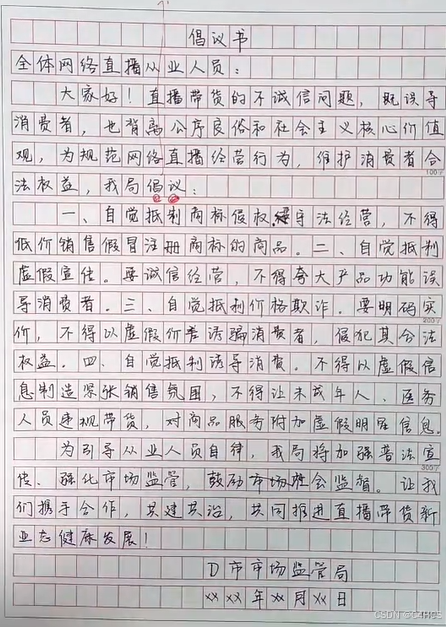 倡议书
全体网络直播从业人员：
大家好！直播带货的不诚信问题，既误导
消费者，也背离公序良俗和社会主义核心价值
观，为规范网络直播经营行为，维护消费者合
100字
法权益，我局倡议：
一、自觉抵制商标侵权，守法经营，不得
低价销售假冒注册商标的商品。二、自觉抵制
虚假宣传。要诚信经营，不得夸大产品功能误
导消费者。三、自觉抵制价格欺诈。要明码实
200字
价，不得以虚假价差诱骗消费者，侵犯其合法
权益。四、自觉抵制诱导消费。不得以虚假信
息制造紧张销售氛围，不得让未成年人、医务
人员违规带货，对商品服务附加虚假明星信息。
为引导从业人员自律，我局将加强普法宣
300字
传、强化市场监管，鼓励市场社会监督。让我
们携手合作，共建共治，共同推进直播带货新
业态健康发展！
D市市场监管局
××××年××月××日
CSDN @C4HC